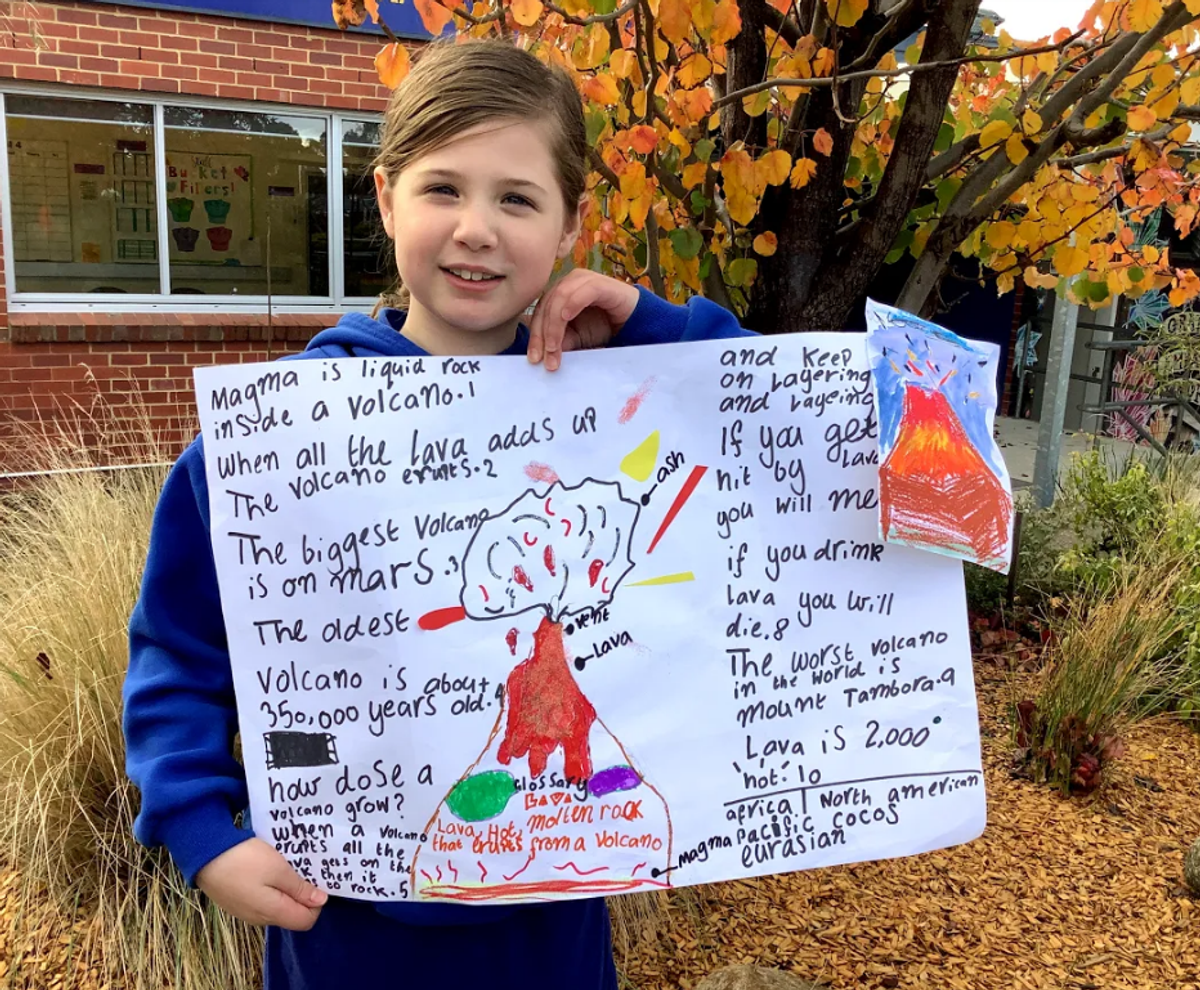 Bucket
Fillers
Magma is liquid rock
inside a volcano.1
When all the lava adds up
The volcano erupts.2
The biggest Volcano
is on mars.3
The oldest
Volcano is about
350,000 years old.4
how dose a
volcano grow?
when a volcano
erupts all the
gets on the
then it
to rock.5
ash
vent
Lava
Glossary
Lava, Hot, molten rock
that erupts from a volcano
Magma
and keep
on Layering
and Layeing
If you get
hit by Lava
you will me
if you drink
Lava you will
die.8
The worst volcano
in the world is
mount Tambora.9
Lava is 2,000°
hot. 10
africa | North american
Pacific cocos
eurasian